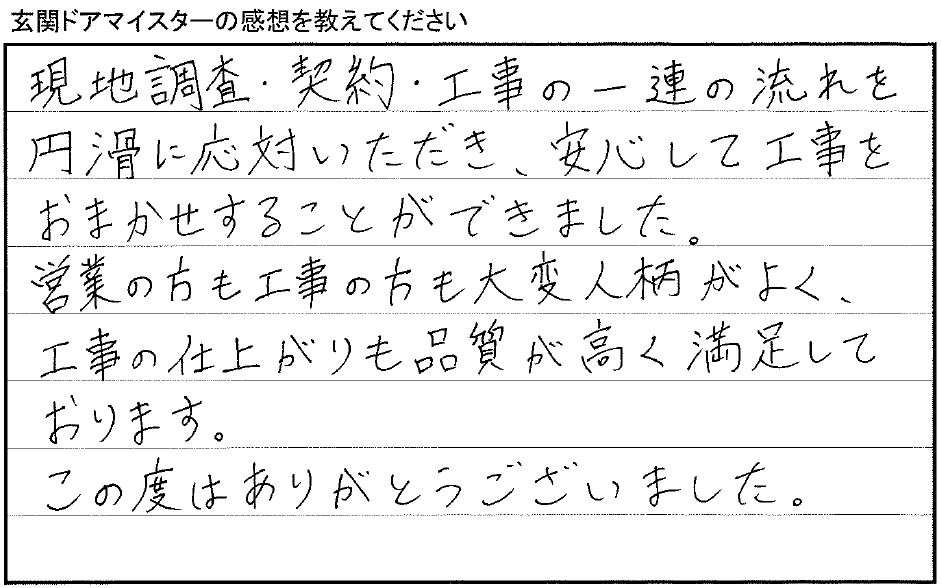 玄関ドアマイスターの感想を教えてください
現地調査・契約・工事の一連の流れを
円滑に応対いただき、安心して工事を
おまかせすることができました。
営業の方も工事の方も大変人柄がよく、
工事の仕上がりも品質が高く満足して
おります。
この度はありがとうございました。